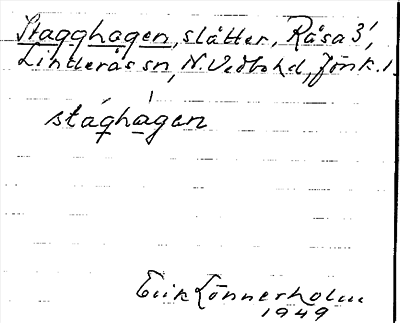 Stagghagen, slåtter, Råsa 3',
Linderås sn, N. Vedbo hd, Jönk. l.
stághàgen
Erik Lönnerholm
1949